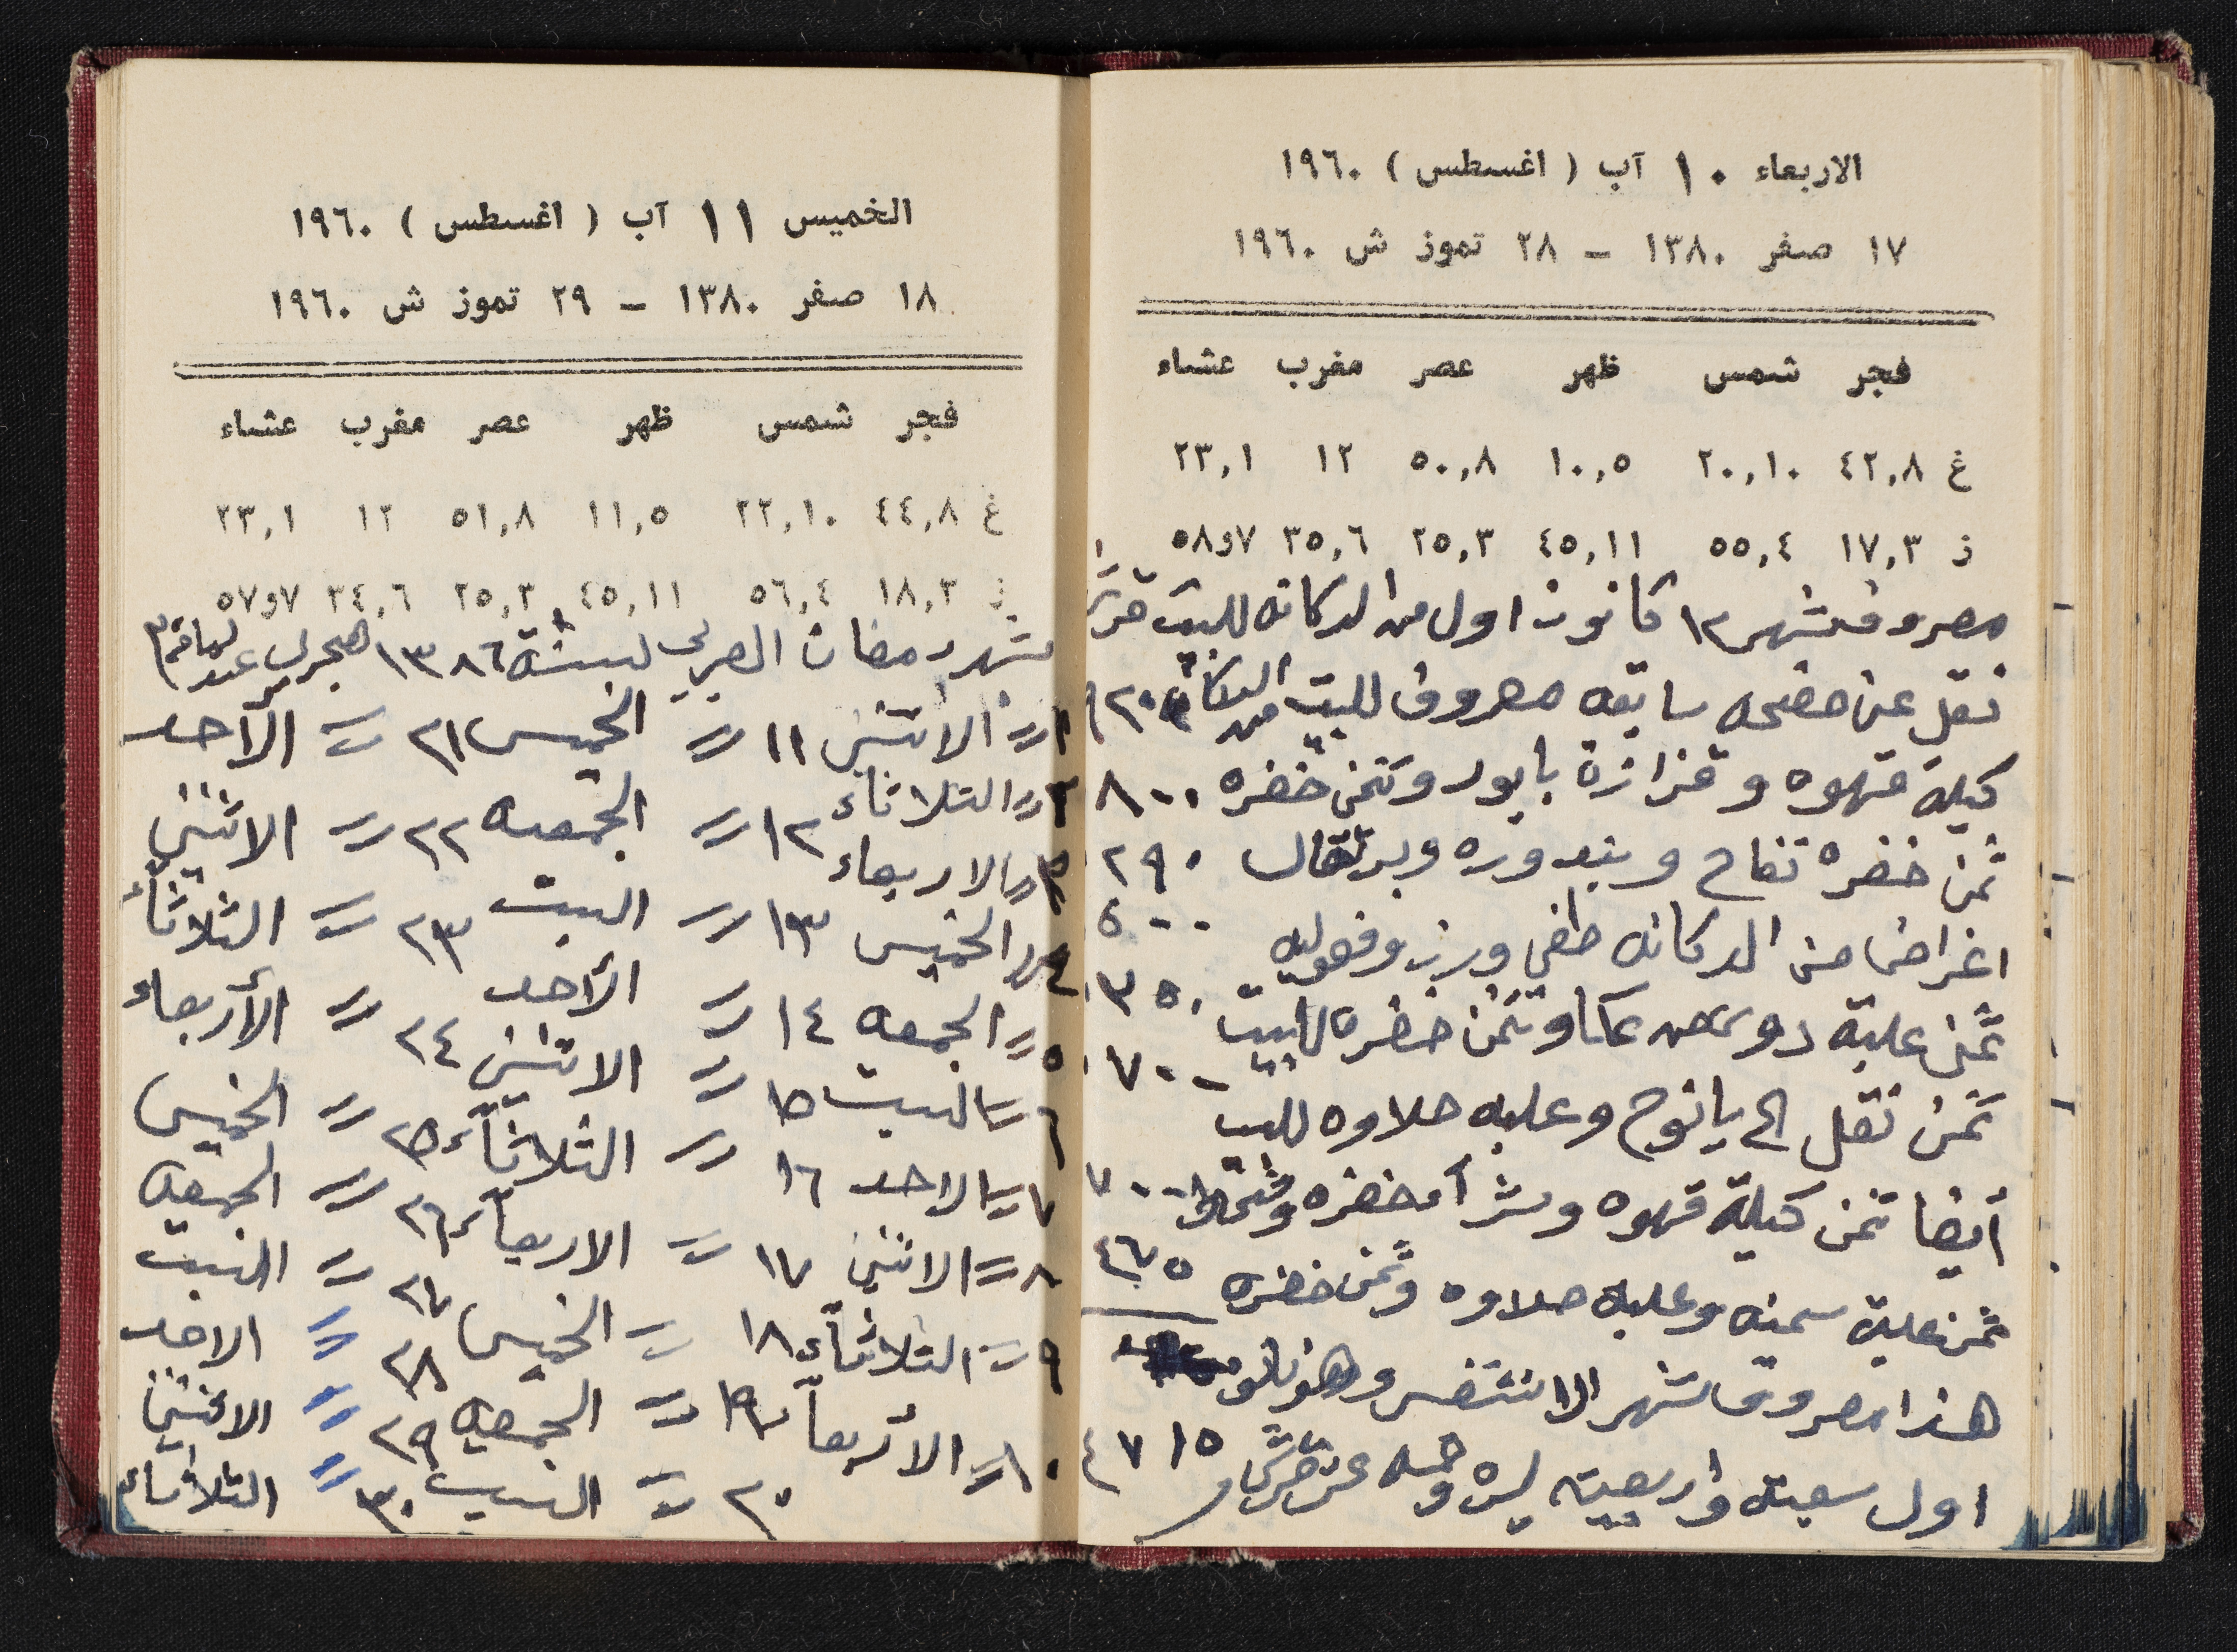 الاربعاء ١٠ آب ( اغسطس ) ١٩٦٠
١٧ صفر ١٣٨٠ – ٢٨ تموز ش ١٩٦٠
فجر شمس ظهر عصر مغرب عشاء
غ ٤٢,٨ ٢٠,١٠ ١٠,٥ ٥٠,٨ ١٢ ٢٣,١
ز ١٧,٣ ٥٥,٤ ٤٥,١١ ٢٥,٣ ٣٥,٦ ٥٨و٧
مصروف شهر ١٢ كانون اول من الدكانه للبيت
نقل عن صفحه سابقه مصروف للبيت من الدكانه
كيلة قهوه وقزازة بابور وثمن خضره ٨٠٠
ثمن خضره تفاح وبندوره وبرتقال ٢٩٠
اغراض من الدكانه ورز وفوليه ٥٠٠
ثمن علبة من عكا وثمن خضرة للبيت ٣٥٠
ثمن نقل الى يانوح وعلبه حلاوه للبيت ٧٠٠
أيضا ثمن كيلة قهوه وشرآء خضره ٧٠٠
ثمن علبة سمنه وعلبه حلاوه وثمن خضره ٤٦٥
هذا مصروف شهر الاثنعش وهو كانون
اول سبعة واربعين ليره وخمسه عشر قرش ٤٧١٥
الخميس ١١ آب ( اغسطس ) ١٩٦٠
١٨ صفر ١٣٨٠ – ٢٩ تموز ش ١٩٦٠
فجر شمس ظهر عصر مغرب عشاء
غ ٤٤,٨ ٢٢,١٠ ١١,٥ ٥١,٨ ١٢ ٢٣,١
ز ١٨,٣ ٥٦,٤ ٤٥,١١ ٢٥,٣ ٣٤,٦ ٥٧و٧
شهر رمضان العربي لسنة ١٣٨٦ هجري
١ = الاثنين ١١ = الخميس ٢١ = الأحد
٢ = الثلاثاء ١٢ = الجمعه ٢٢ = الاثنين
٣ = الاربعاء ١٣ = السبت ٢٣ = الثلاثاء
٤ = الخميس ١٤ = الأحد ٢٤ = الأربعاء
٥ = الجمعه ١٥ = الاثنين ٢٥ = الخميس
٦ = السبت ١٦ = الثلاثاء ٢٦ = الجمعه
٧ = الاحد ١٧ = الاربعآء ٢٧ = السبت
٨ = الاثنين ١٨ = الخميس ٢٨ = الاحد
٩ = الثلاثآء ١٩ = الجمعه ٢٩ = الاثنين
١٠ = الأربعآء ٢٠ = السبت ٣٠ = الثلاثاء